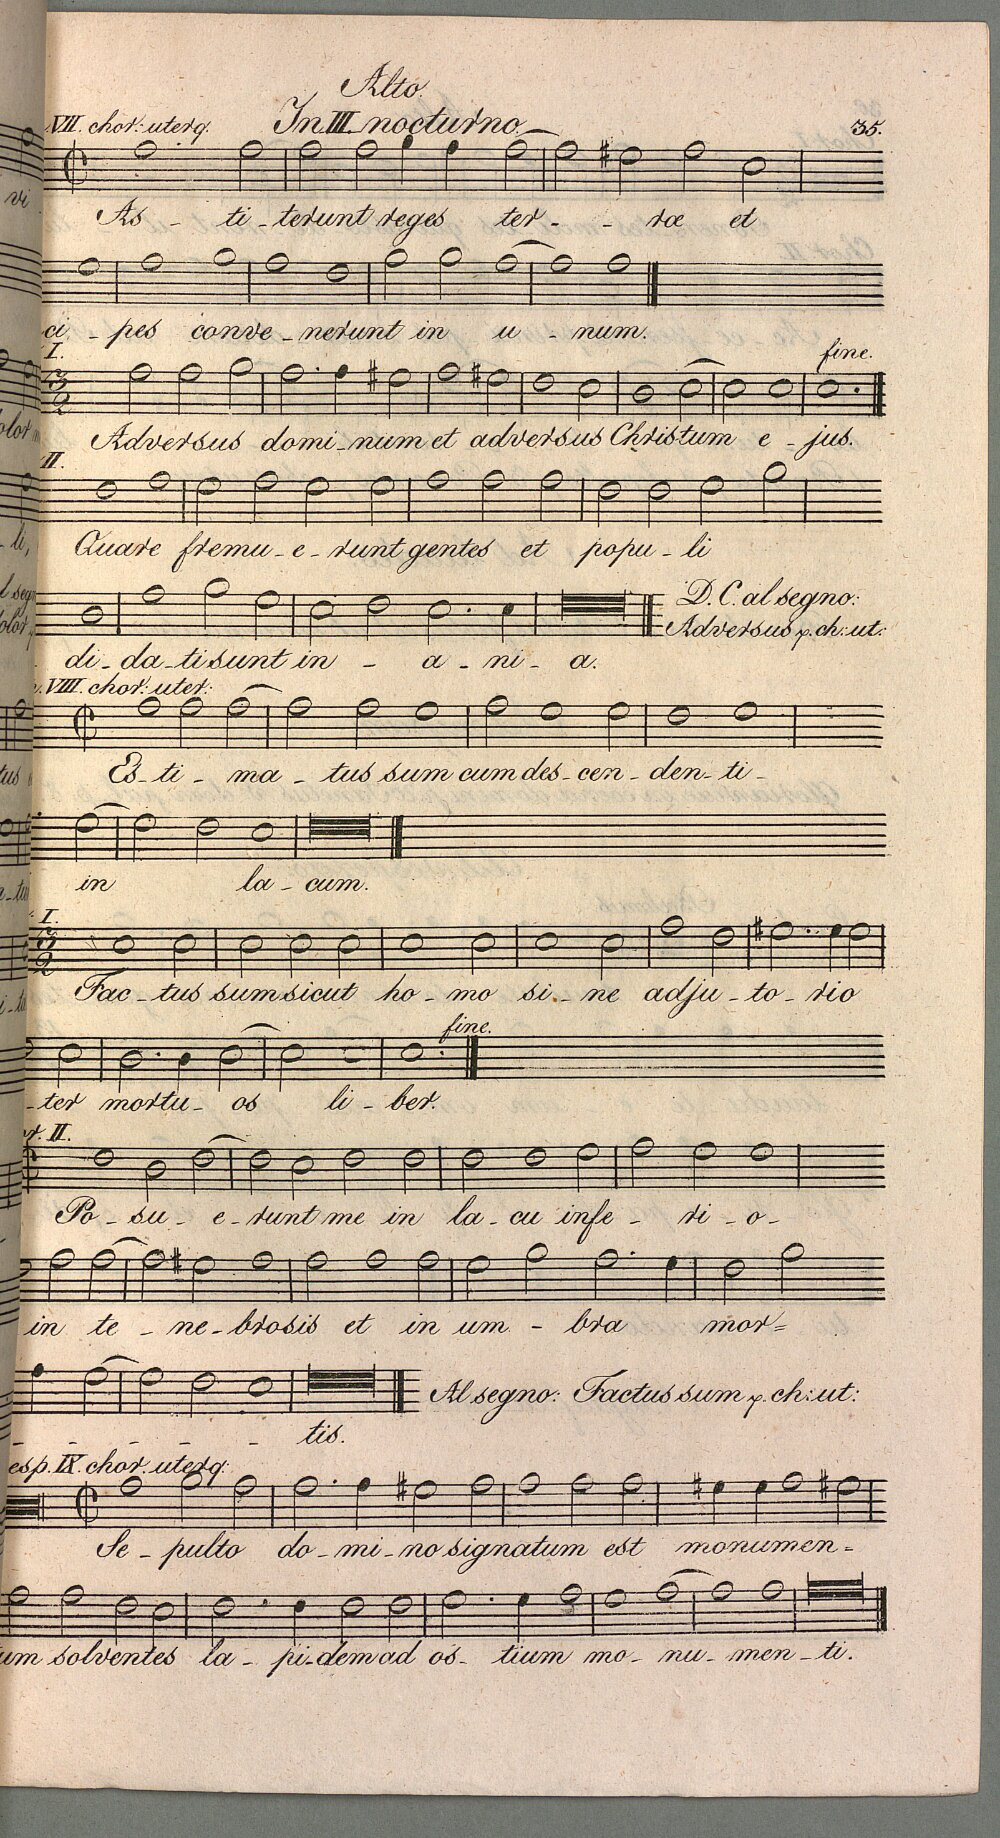 Alto.
VII. chor: uterq. In III nocturno. 35.
As - ti - terunt reges ter - - ræ et
ci - pes conve - nerunt in u - num.
I. fine.
Adversus domi - num et adversus Christum e - jus.
II.
Quare fremu - e - runt gentes et popu - li
D. C. al segno:
Adversus p. ch: ut:
di - da - ti sunt in - a - ni - a.
VIII. chor: uter:
Es - ti - ma - tus sum cum des - cen - den - ti -
in la - cum.
I.
Fac - tus sum sicut ho - mo si - ne adju - to - rio
fine.
- ter mortu - os li - ber.
II.
Po - su - e - runt me in la - cu infe - ri - o -
in te - ne - brosis et in um - bra mor=
Al segno: Factus sum p. ch: ut:
- - - - - tis.
esp. IX. chor. uterq:
Se - pulto do - mi - no signatum est monumen=
um solventes la - pi - dem ad os - tium mo - nu - men - ti.